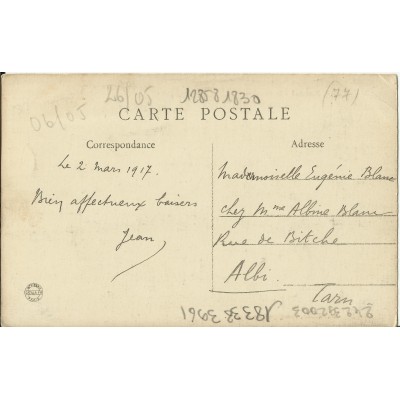 06/05 26/05 12858 1830 (77)
CARTE POSTALE
Correspondance
Le 2 mars 1917.
Bien affectueux baisers
Jean
Adresse
Mademoiselle Eugénie Blanc
chez Mme Albine Blanc
Rue de Bitche
Albi.
Tarn